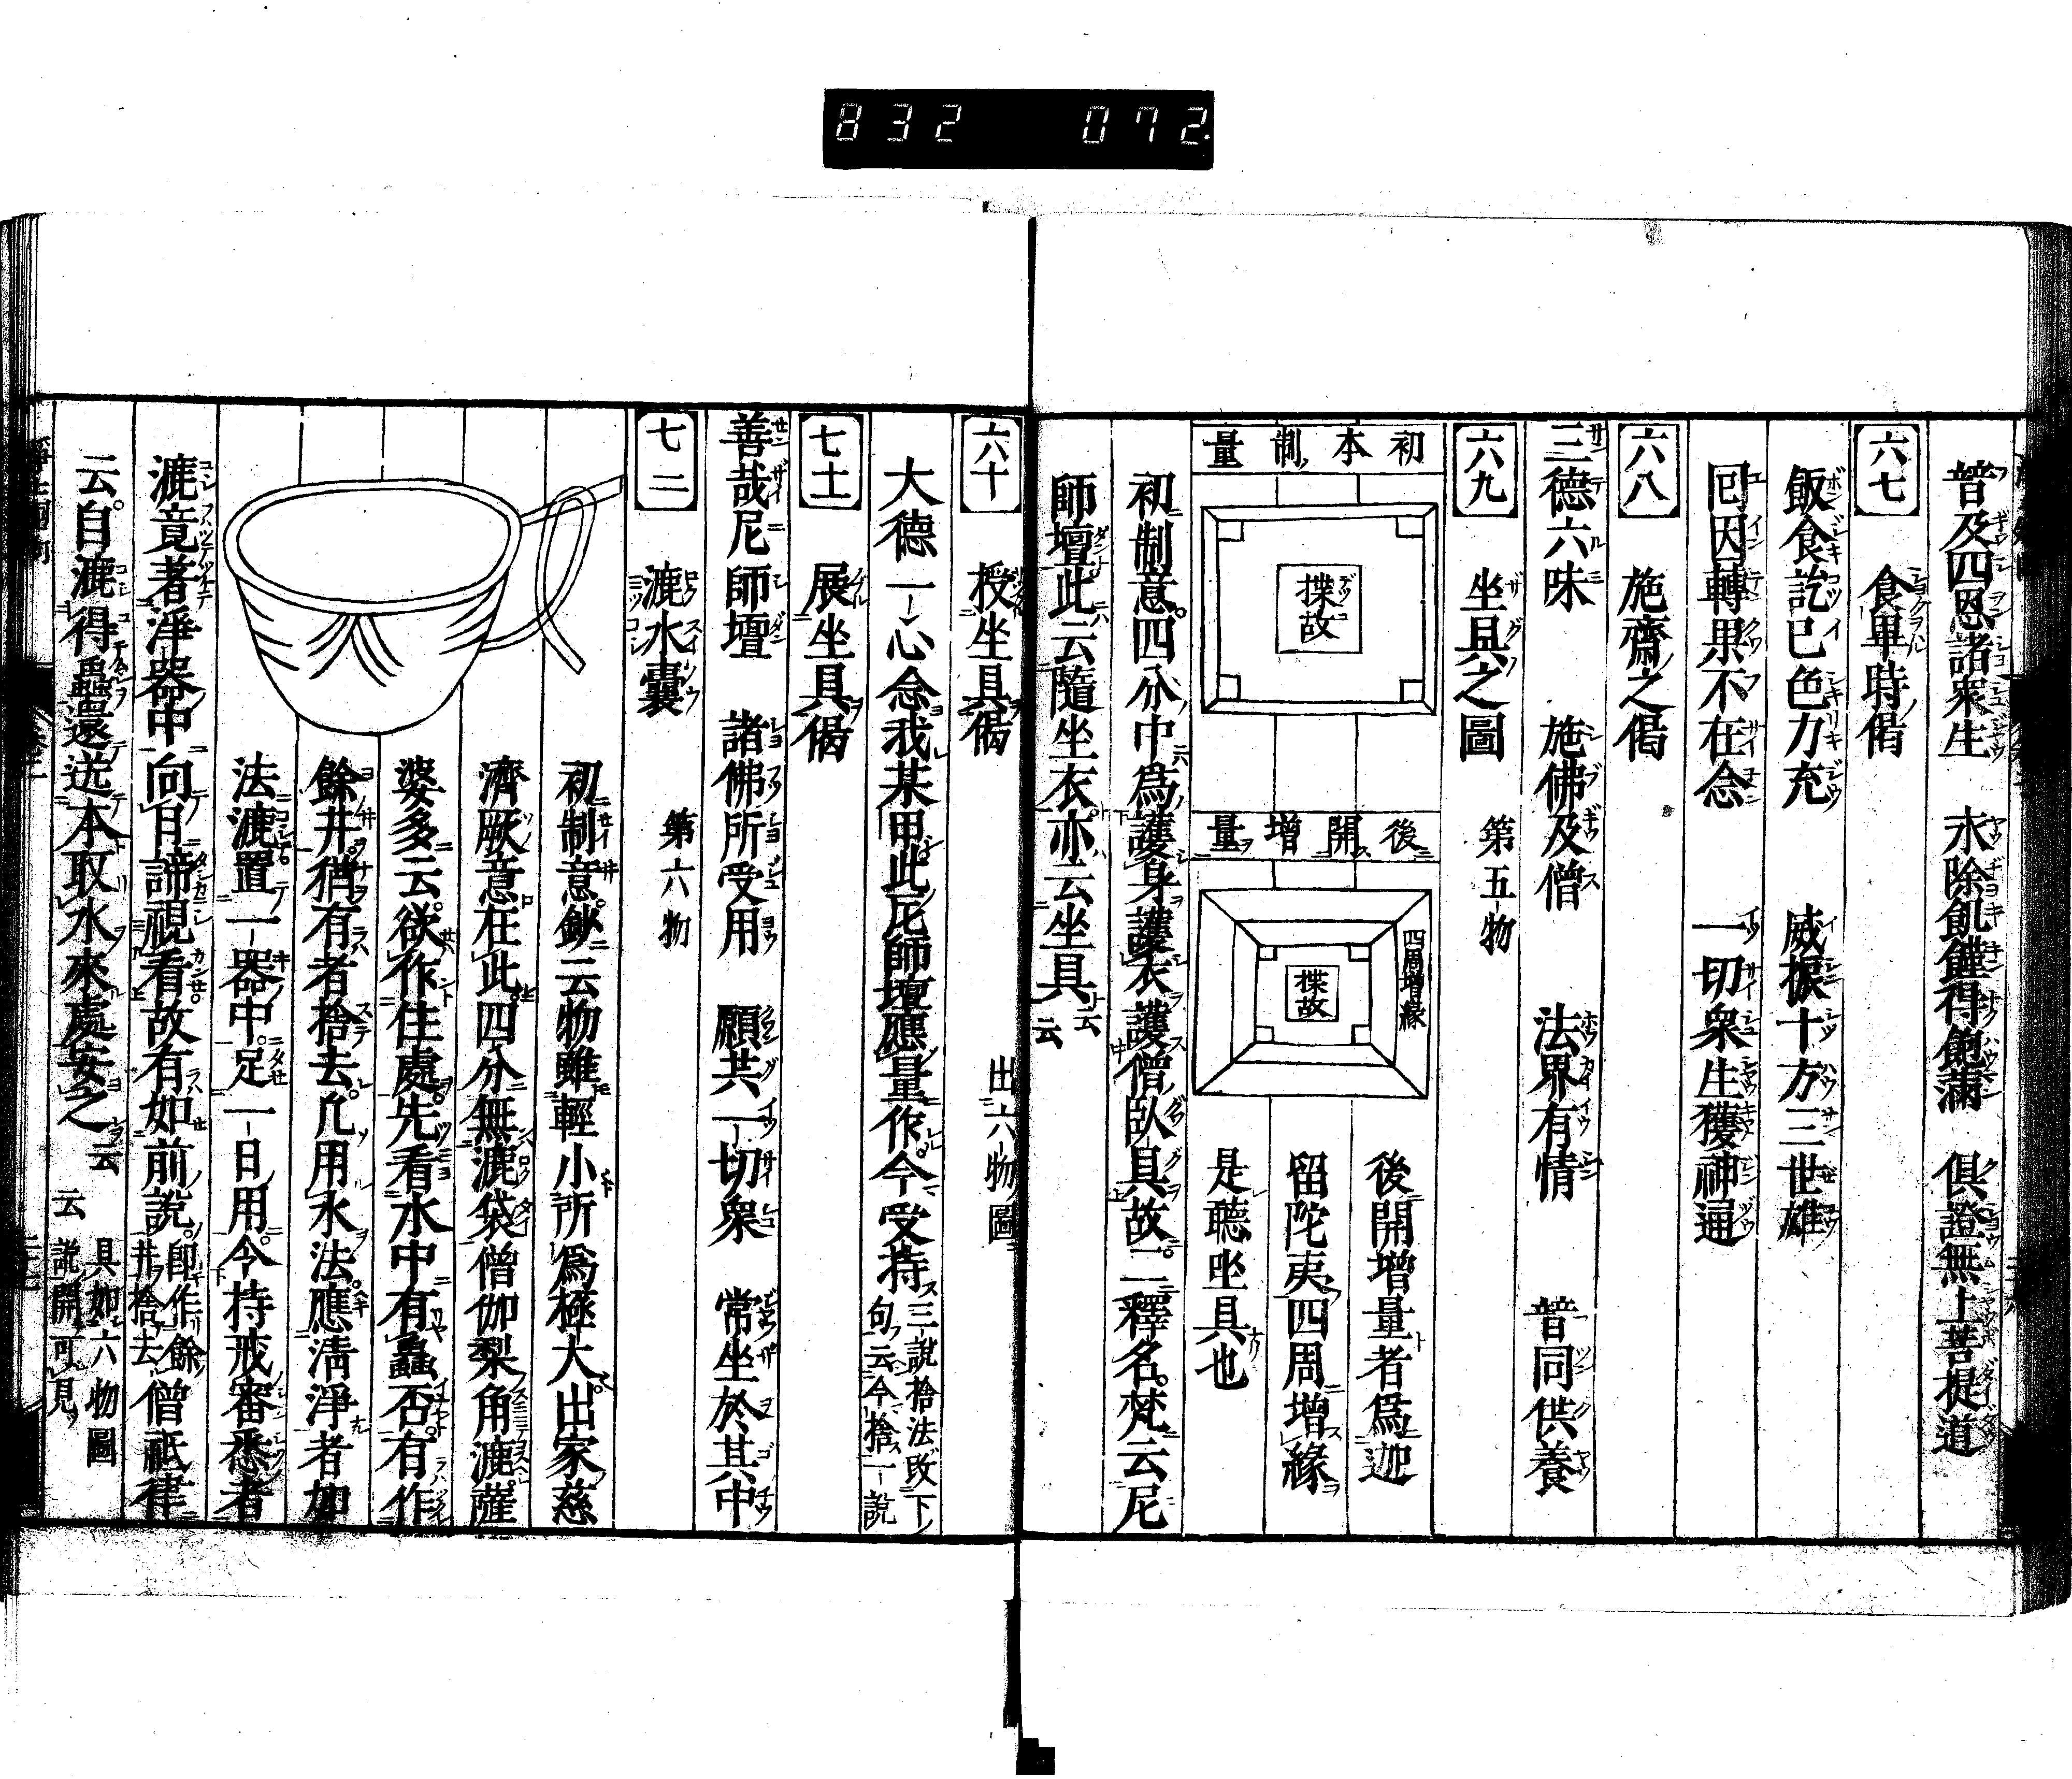 832 072
普及四恩諸衆生 永除飢饉得飽滿 俱證無上菩提道
六七 食畢時偈
飯食訖已色力充 威振十方三世雄
回因轉果不在念 一切衆生獲神通
六八 施齋之偈
三德六味 施佛及僧 法界有情 普同供養
六九 坐具之圖 第五物
初本制量
揲故
後開增量
四周增緣
揲故
後開增量者爲迦
留陀夷四周增緣
是聽坐具也
初制意四分中爲護身護衣護僧臥具故二釋名梵云尼
師壇此云隨坐衣亦云坐具云云
六十 授坐具偈 出六物圖
大德一心念我某甲此尼師壇應量作今受持三說捨法改下句云今捨一說
七十一 展坐具偈
善哉尼師壇 諸佛所受用 願共一切衆 常坐於其中
七二 漉水囊 第六物
初制意鈔云物雖輕小所爲極大出家慈
濟厥意在此四分無漉袋僧伽梨角漉薩
婆多云欲作住處先看水中有蟲否有作
餘井猶有者捨去凡用水法應淸淨者如
法漉置一器中足一日用令持戒審悉者
漉竟者淨器中向日諦視看故有如前說卽作餘井捨去僧祇律
云自漉得蟲還送本取水來處安之云云具如六物圖說開可見